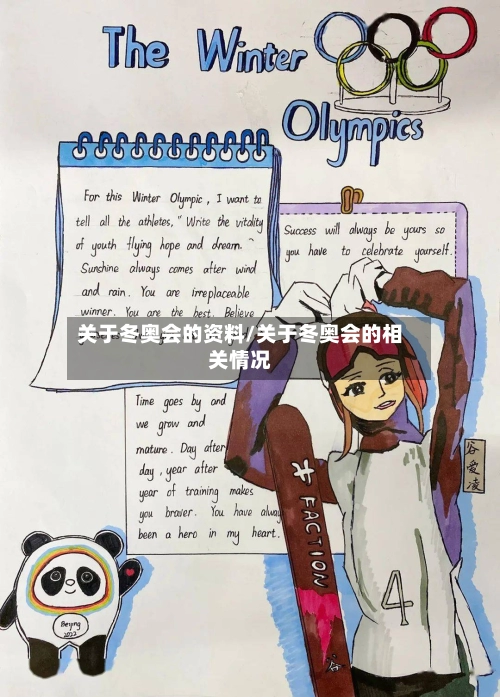 The Winter
Olympics
For this Winter Olympic, I want to
tell all the athletes, " Write the vitality
of youth flying hope and dream. "
Sunshine always comes after wind
and rain. You are irreplaceable
winner. You are the best. Believe
Success will always be yours so
you have to celebrate yourself.
关于冬奥会的资料/关于冬奥会的相
关情况
Time goes by and
we grow and
mature. Day after
day, year after
year of training makes
you braver. You have alway
been a hero in my heart.
FACTION
谷
4
谷爱凌
Beijing
2022